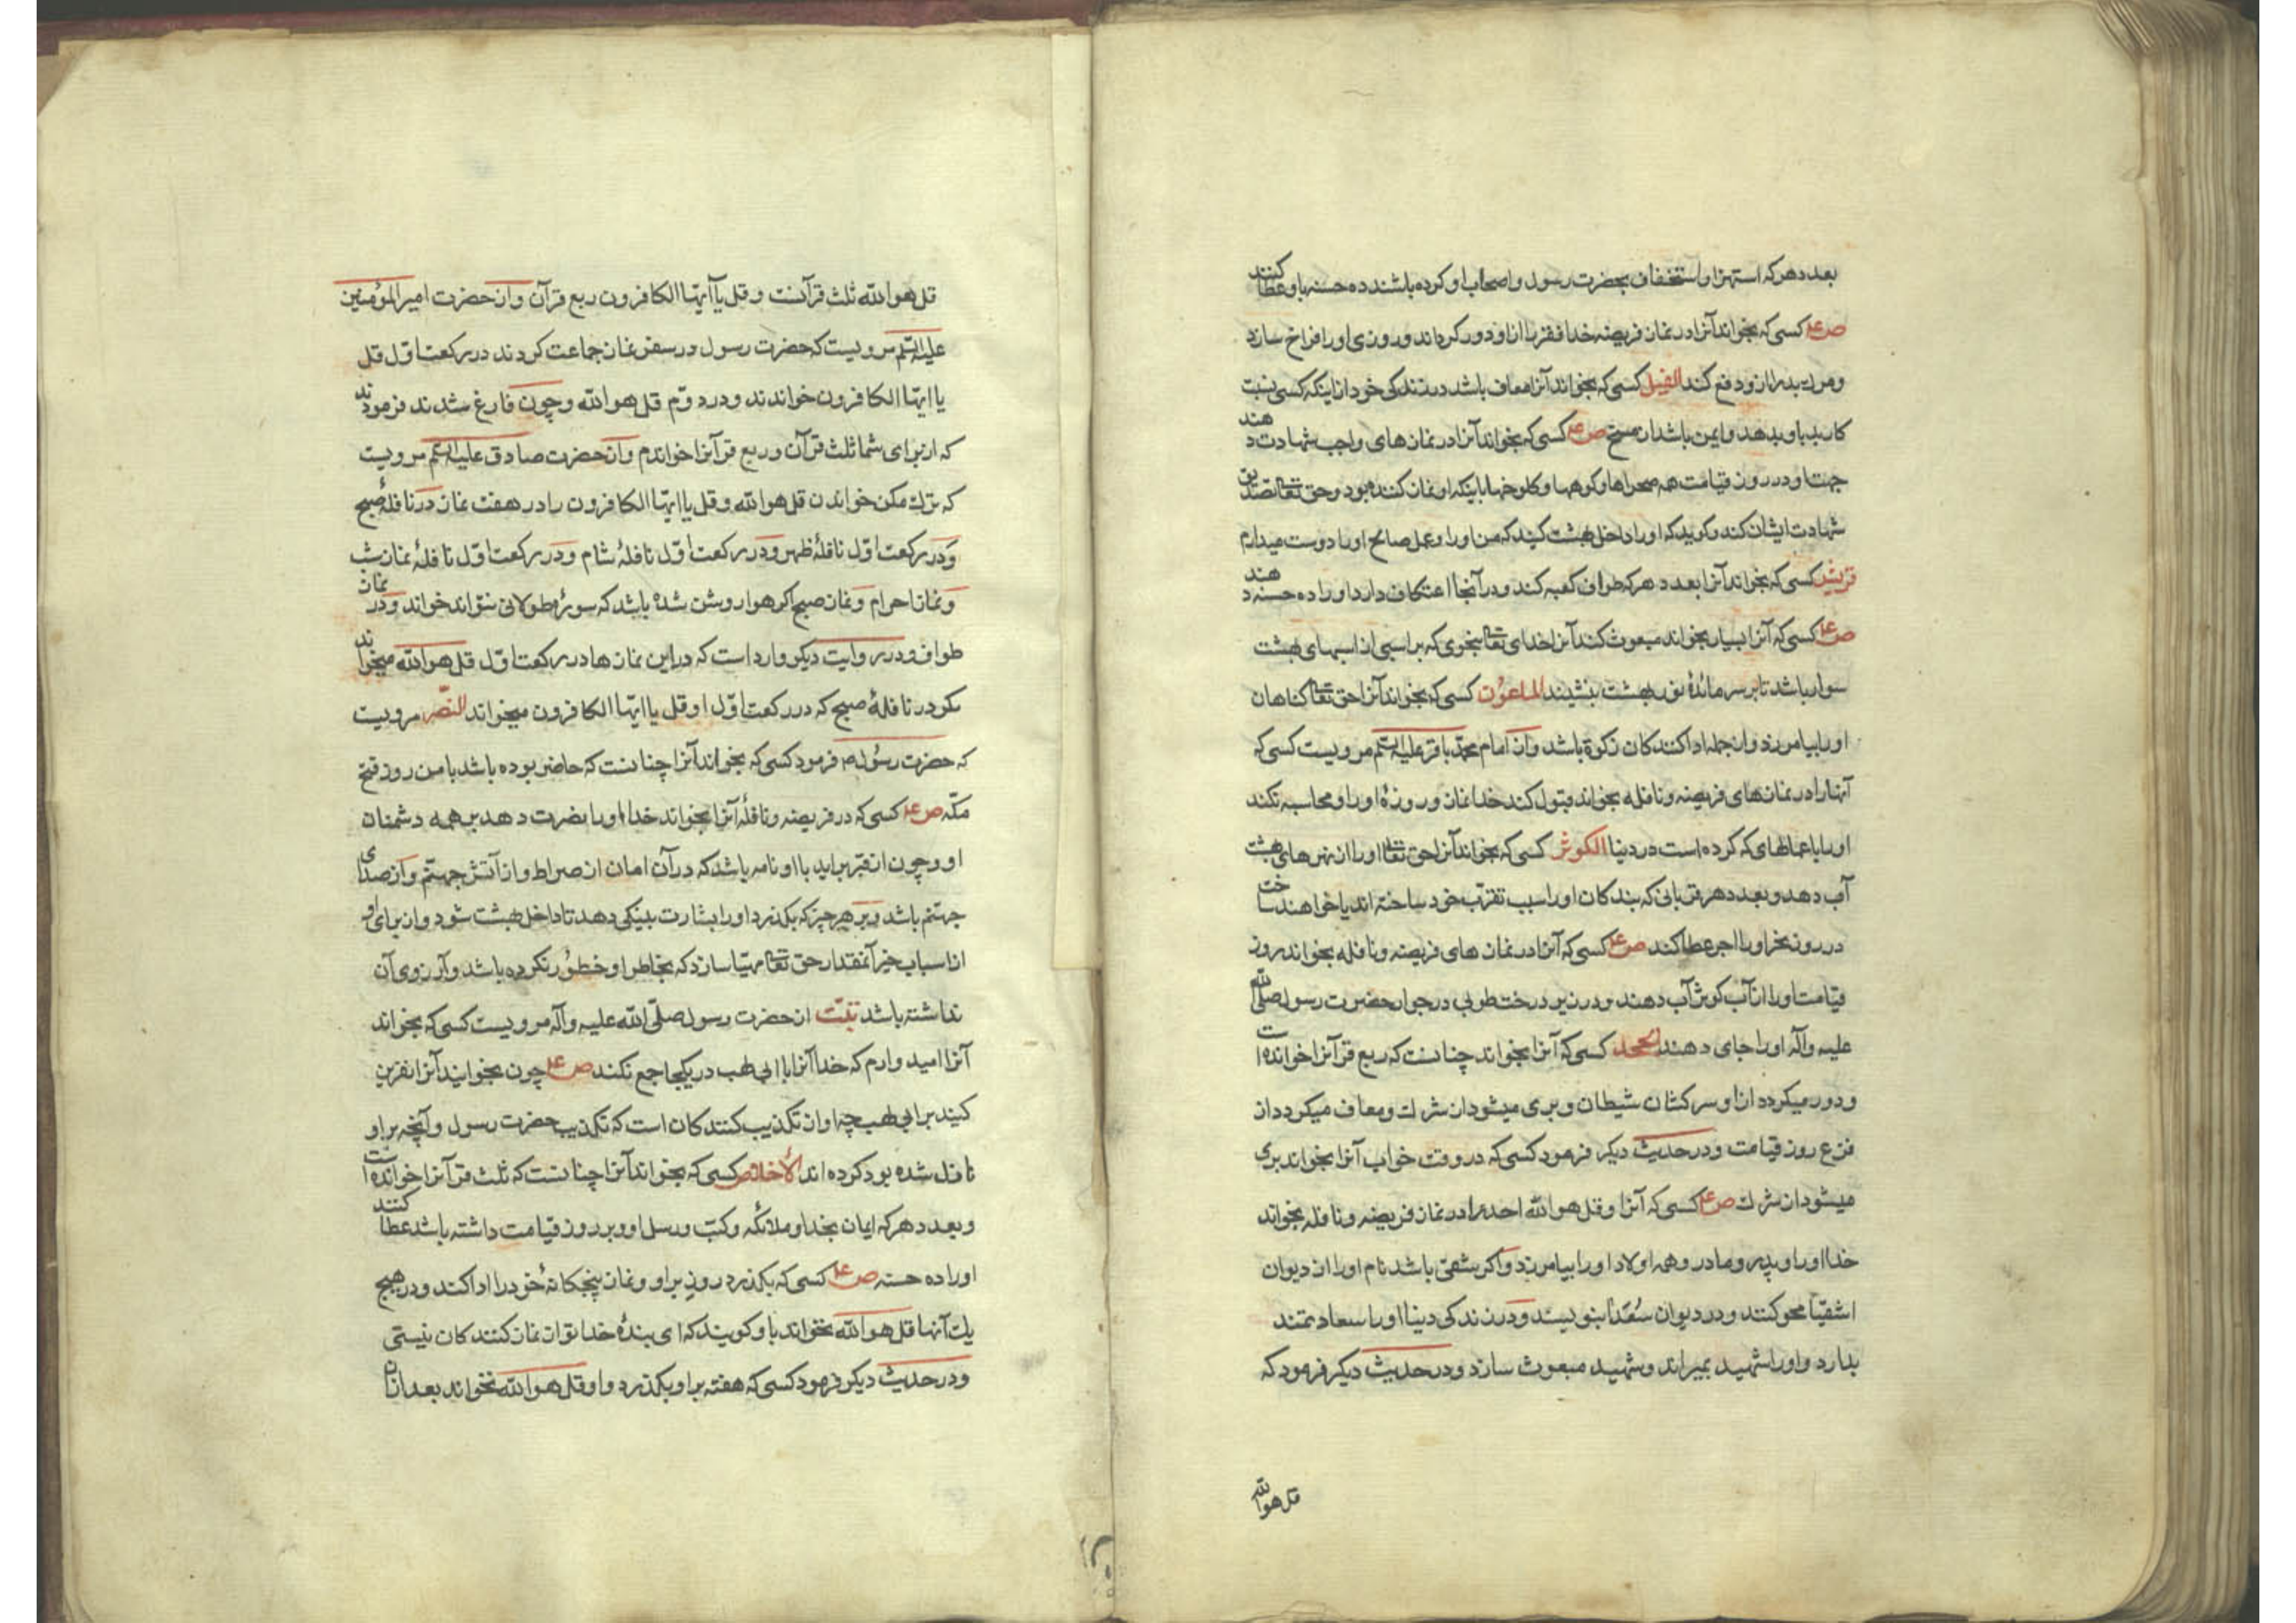 بعدد هر که استهزا و استخفاف بحضرت رسول و اصحاب او کرده باشند ده حسنه باو عطا کنند
ص ع کسی که بخواند آنرا در نماز فریضه خدا فقر را از او دور کرداند و روزی او را فراخ سازد
و مرك بد را از و دفع کند الفیل کسی که بخواند آنرا معاف باشد در زندکی خود از اینکه کسی نسبت
کار بد باو بدهد و ایمن باشد از مسخ ص ع کسی که بخواند آنرا در نمازهای واجب شهادت دهند
جهت او در روز قیامت همه صحراها و کوهها و کلوخها باینکه او نماز کننده بود و حق تعا تصدیق
شهادت ایشان کند و کوید که او را داخل بهشت کنید که من او را و عمل صالح او را دوست میدارم
قریش کسی که بخواند آنرا بعدد هر که طواف کعبه کند و در آنجا اعتکاف دارد او را ده حسنه دهند
ص ع کسی که آنرا بسیار بخواند مبعوث کند آنرا خدای تعا بنحوی که بر اسبی از اسبهای بهشت
سوار باشد تا بر سر مائدهٔ نور بهشت بنشیند الماعون کسی که بخواند آنرا حق تعا کناهان
او را بیامرزد و از جمله ادا کنندکان زکوة باشد و از امام محمد باقر علیه السلم مرویست کسی که
آنها را در نمازهای فریضه و نافله بخواند قبول کند خدا نماز و روزهٔ او را و محاسبه نکند
او را با عملهای که کرده است در دنیا الکوثر کسی که بخواند آنرا حق تعا او را از نهرهای بهشت
آب دهد و بعدد هر قربانی که بندکان او را سبب تقرب خود ساخته اند یا خواهند ساخت
در روز نحر او را اجر عطا کند ص ع کسی که آنرا در نماز های فریضه و نافله بخواند روز
قیامت او را از آب کوثر آب دهند و در زیر درخت طوبی در جوار حضرت رسول صلی الله
علیه و آله او را جای دهند الجحد کسی که آنرا بخواند چنانست که ربع قرآنرا خوانده است
و دور میکردد از او سرکشان شیطان و بری میشود از شرك و معاف میکردد از
فزع روز قیامت و در حدیث دیکر فرمود کسی که در وقت خواب آنرا بخواند بری
میشود از شرك ص ع کسی که آنرا و قل هو الله احد را در نماز فریضه و نافله بخواند
خدا او را و پدر و مادر و همه اولاد او را بیامرزد و اکر شقی باشد نام او را از دیوان
اشقیا محو کنند و در دیوان سُعَدا بنویسند و در زندکی دنیا او را سعادتمند
بدارد و او را شهید بمیراند و شهید مبعوث سازد و در حدیث دیکر فرمود که
قل هو الله
قل هو الله ثلث قرآنست و قل یا آیها الکافرون ربع قرآن و از حضرت امیر المؤمنین
علیه السلم مرویست که حضرت رسول در سفر نماز جماعت کردند در رکعت اول قل
یا ایها الکافرون خواندند و در دوّم قل هو الله و چون فارغ شدند فرمودند
که از برای شما ثلث قرآن و ربع قرآنرا خواندم و از حضرت صادق علیه السلم مرویست
که ترك مکن خواندن قل هو الله و قل یا ایها الکافرون را در هفت نماز در نافلهٔ صبح
و در رکعت اوّل نافلهٔ ظهر و در رکعت اوّل نافلهٔ شام و در رکعت اوّل نافلهٔ نماز شب
و نماز احرام و نماز صبح اکر هوا روشن شده باشد که سورهٔ طولانی نتواند خواند و در نماز
طواف و در روایت دیکر وارد است که در این نمازها در رکعت اول قل هو الله میخوانند
مکر در نافلهٔ صبح که در رکعت اوّل او قل یا ایها الکافرون میخواند النّصر مرویست
که حضرت رسُول فرمود کسی که بخواند آنرا چنانست که حاضر بوده باشد با من روز فتح
مکّه ص ع کسی که در فریضه و نافله آنرا بخواند خدا او را نصرت دهد بر همه دشمنان
او و چون از قبر براید با او نامه باشد که در آن امان از صراط و از آتش جهنّم و از صدای
جهنم باشد و بر هر چیز که بکذرد او را بشارت بنیکی دهد تا داخل بهشت شود و از برای او
از اسباب خیر آنمقدار حق تعا مهیّا سازد که بخاطر او خطُور نکرده باشد و آرزوی آن
نداشته باشد تبّت از حضرت رسول صلّی الله علیه و آله مرویست کسی که بخواند
آنرا امید وارم که خدا آنرا با ابی لهب در یکجا جمع نکند ص ع چون بخوانید آنرا نفرین
کنید بر ابی لهب چه او از تکذیب کنندکان است که تکذیب حضرت رسول و آنچه بر او
نازل شده بود کرده اند الأخلاص کسی که بخواند آنرا چنانست که ثلث قرآنرا خوانده است
و بعدد هر که ایمان بخدا و ملائکه و کتب و رسل او و بر روز قیامت داشته باشد عطا کنند
او را ده حسنه ص ع کسی که بکذرد روز بر او و نماز پنجکانهٔ خود را ادا کند و در هیچ
یك آنها قل هو الله نخواند باو کویند که ای بندهٔ خدا تو از نماز کنندکان نیستی
و در حدیث دیکر فرمود کسی که هفته بر او بکذرد و او قل هو الله نخواند بعد از آن